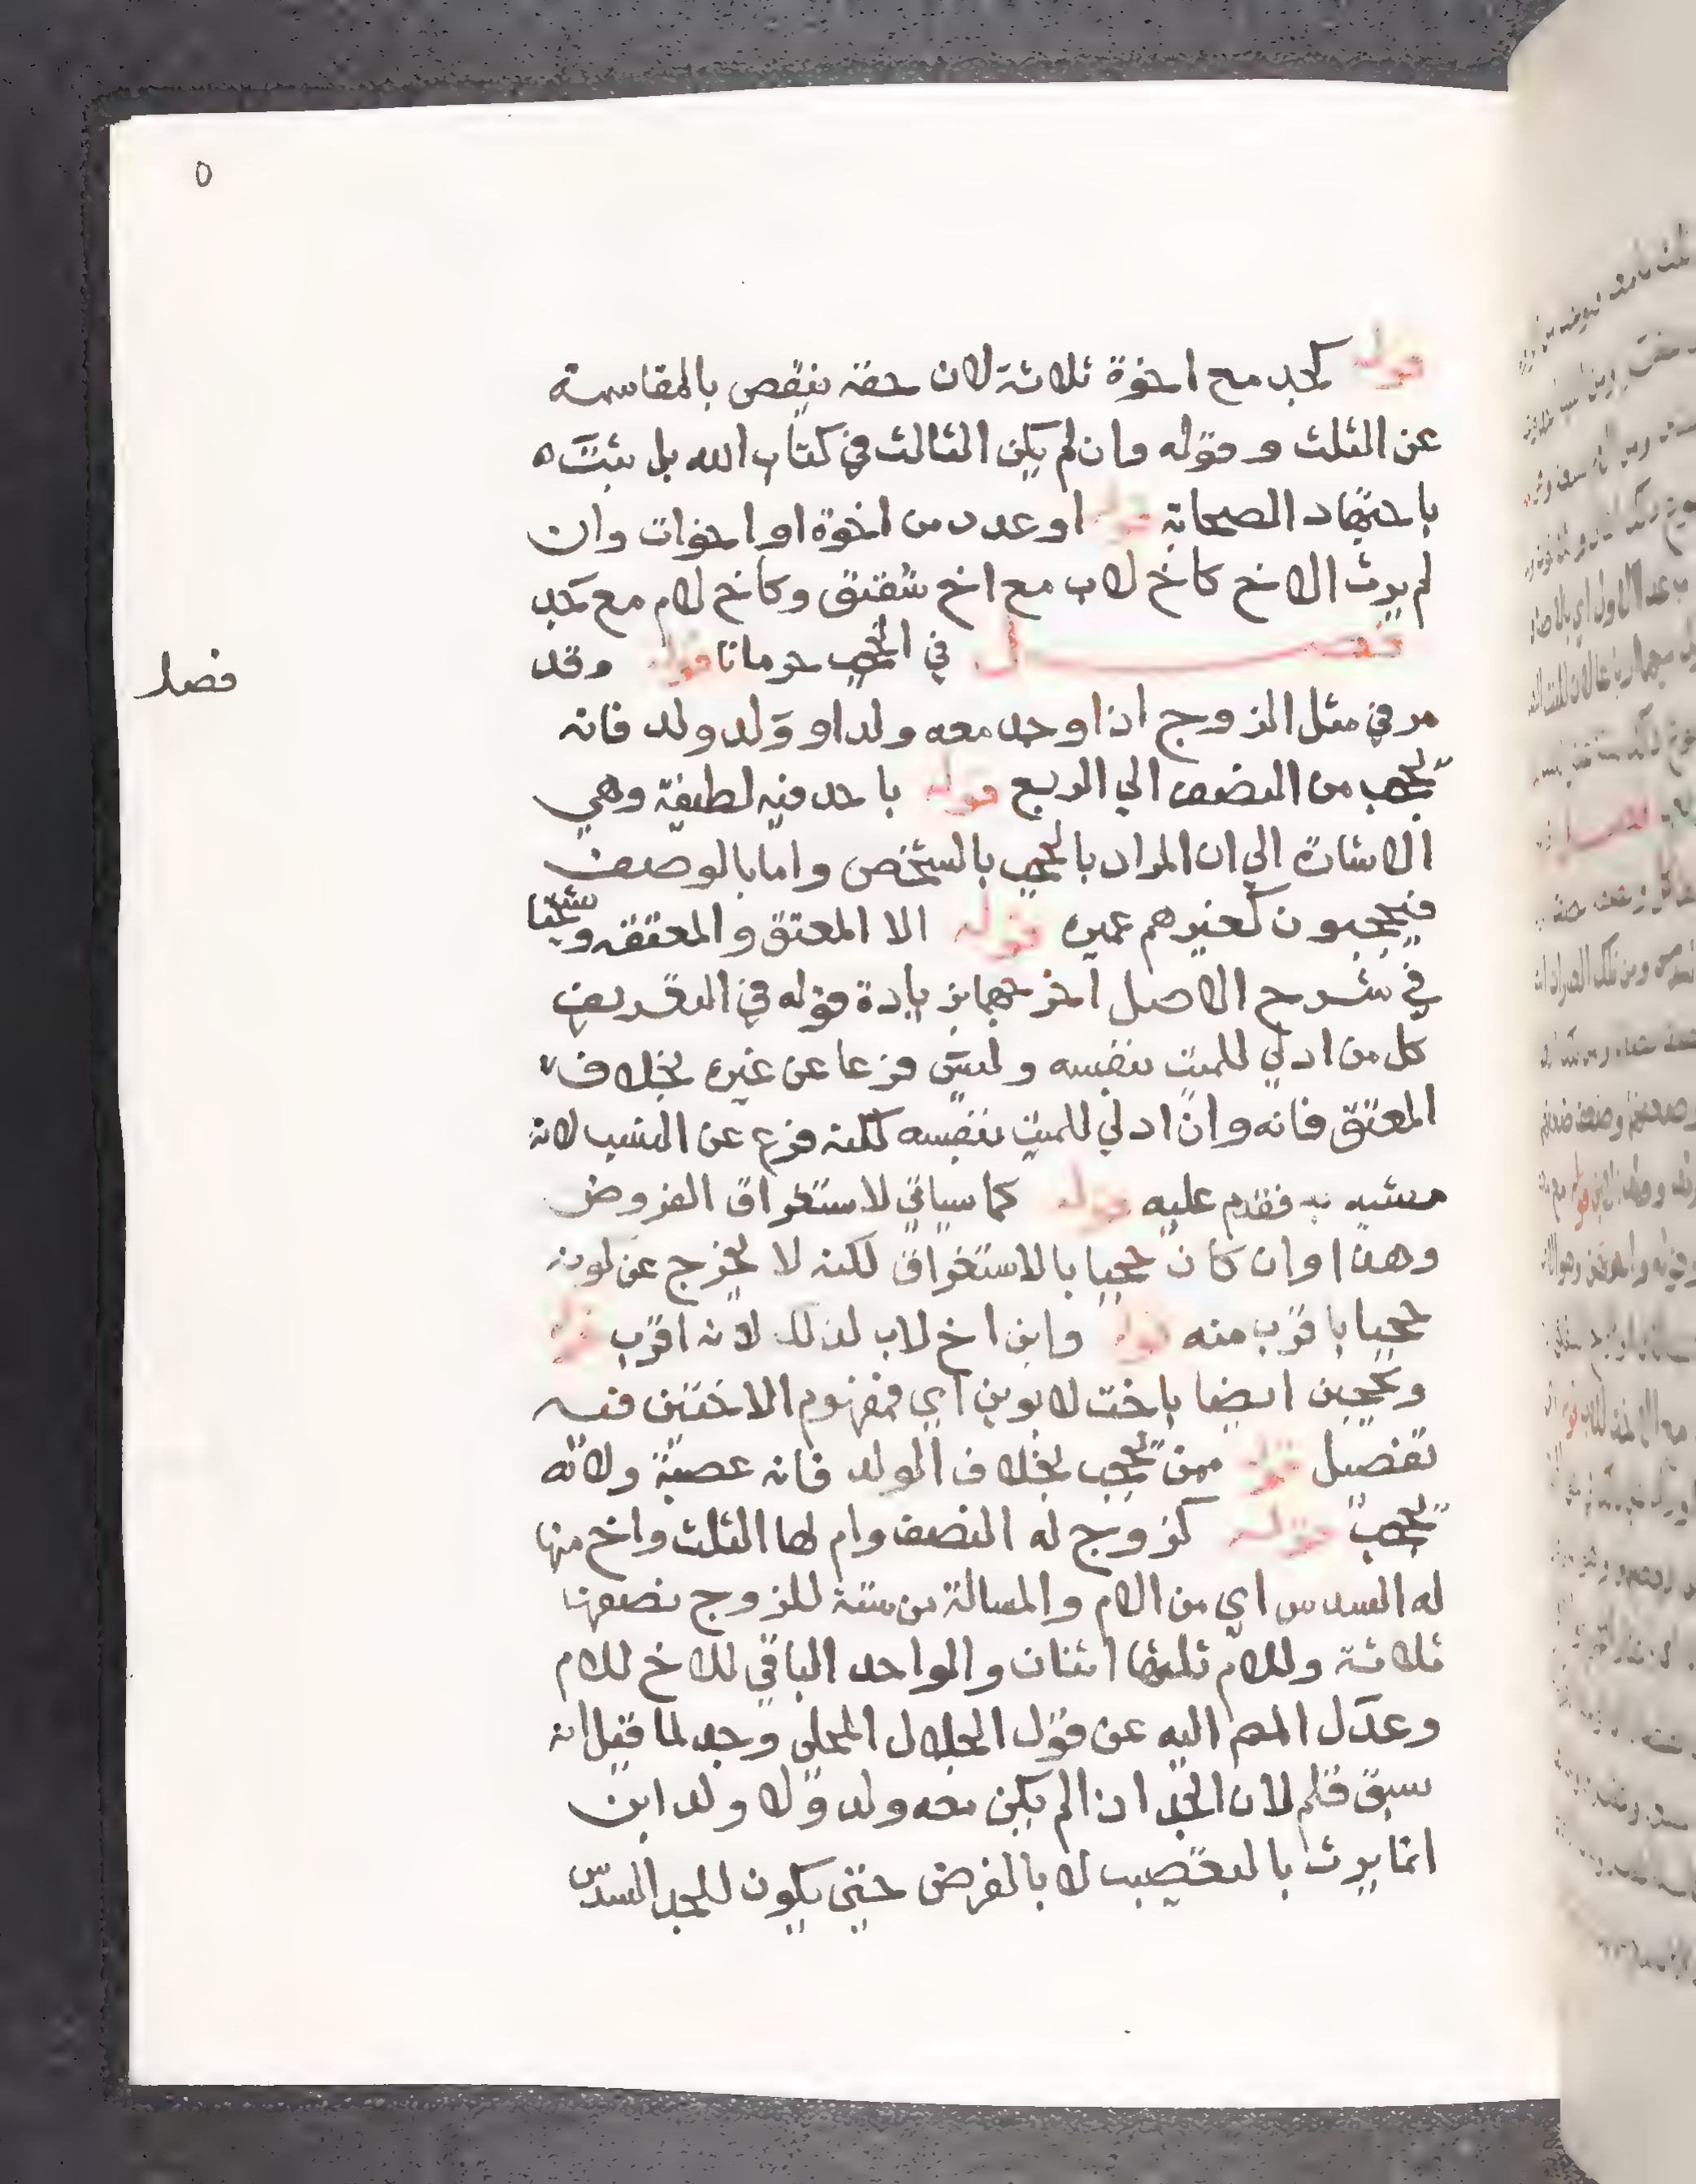 ٥
قوله كجد مع اخوة ثلاثة لان حقه ينقص بالمقاسمة
عن الثلث وقوله وان لم يكن الثالث في كتاب الله بل يثبت
باجتهاد الصحابة قوله او عدد من اخوة او اخوات وان
لم يرث الاخ كاخ لاب مع اخ شقيق وكاخ لام مع جد
فصل في الحجب حرمانا قوله وقد
فصل
مر في مثل الزوج اذا وجد معه ولد او ولد ولد فانه
يحجب من النصف الي الربع قوله باحد فيه لطيفة وهي
الاشارة الي ان المراد بالحجب بالشخص واما بالوصف
فيحجبون كغيرهم عميره قوله الا المعتق والمعتقه وشيخنا
في شرح الاصل اخرجهما بزيادة قوله في التعريف
كل من ادلي للميت بنفسه وليس فرعا عن غيره بخلاف
المعتق فانه وان ادلي للميت بنفسه لكنه فرع عن النسب لانه
مشبه به فقدم عليه قوله كما سياتي لاستغراق الفروض
وهذا وان كان حجبا بالاستغراق لكنه لا يخرج عن كونه
حجبا باقرب منه قوله وابن اخ لاب لذلك لانه اقرب قوله
ويحجبن ايضا باخت لابوين اي فمفهوم الاختين فيه
تفصيل قوله ممن يحجب بخلاف الولد فانه عصبة ولانه
يحجب قوله كزوج له النصف وام لها الثلث واخ منها
له السدس اي من الام والمسالة من ستة للزوج نصفها
ثلاثة وللام ثلثها اثنان والواحد الباقي للاخ للام
وعدل المص اليه عن قول الجلال المحلي وجد لما قيل انه
سبق قلم لان الجد اذا لم يكن معه ولد ولا ولد ابن
انما يرث بالتعصيب لا بالفرض حتى يكون للجد السدس